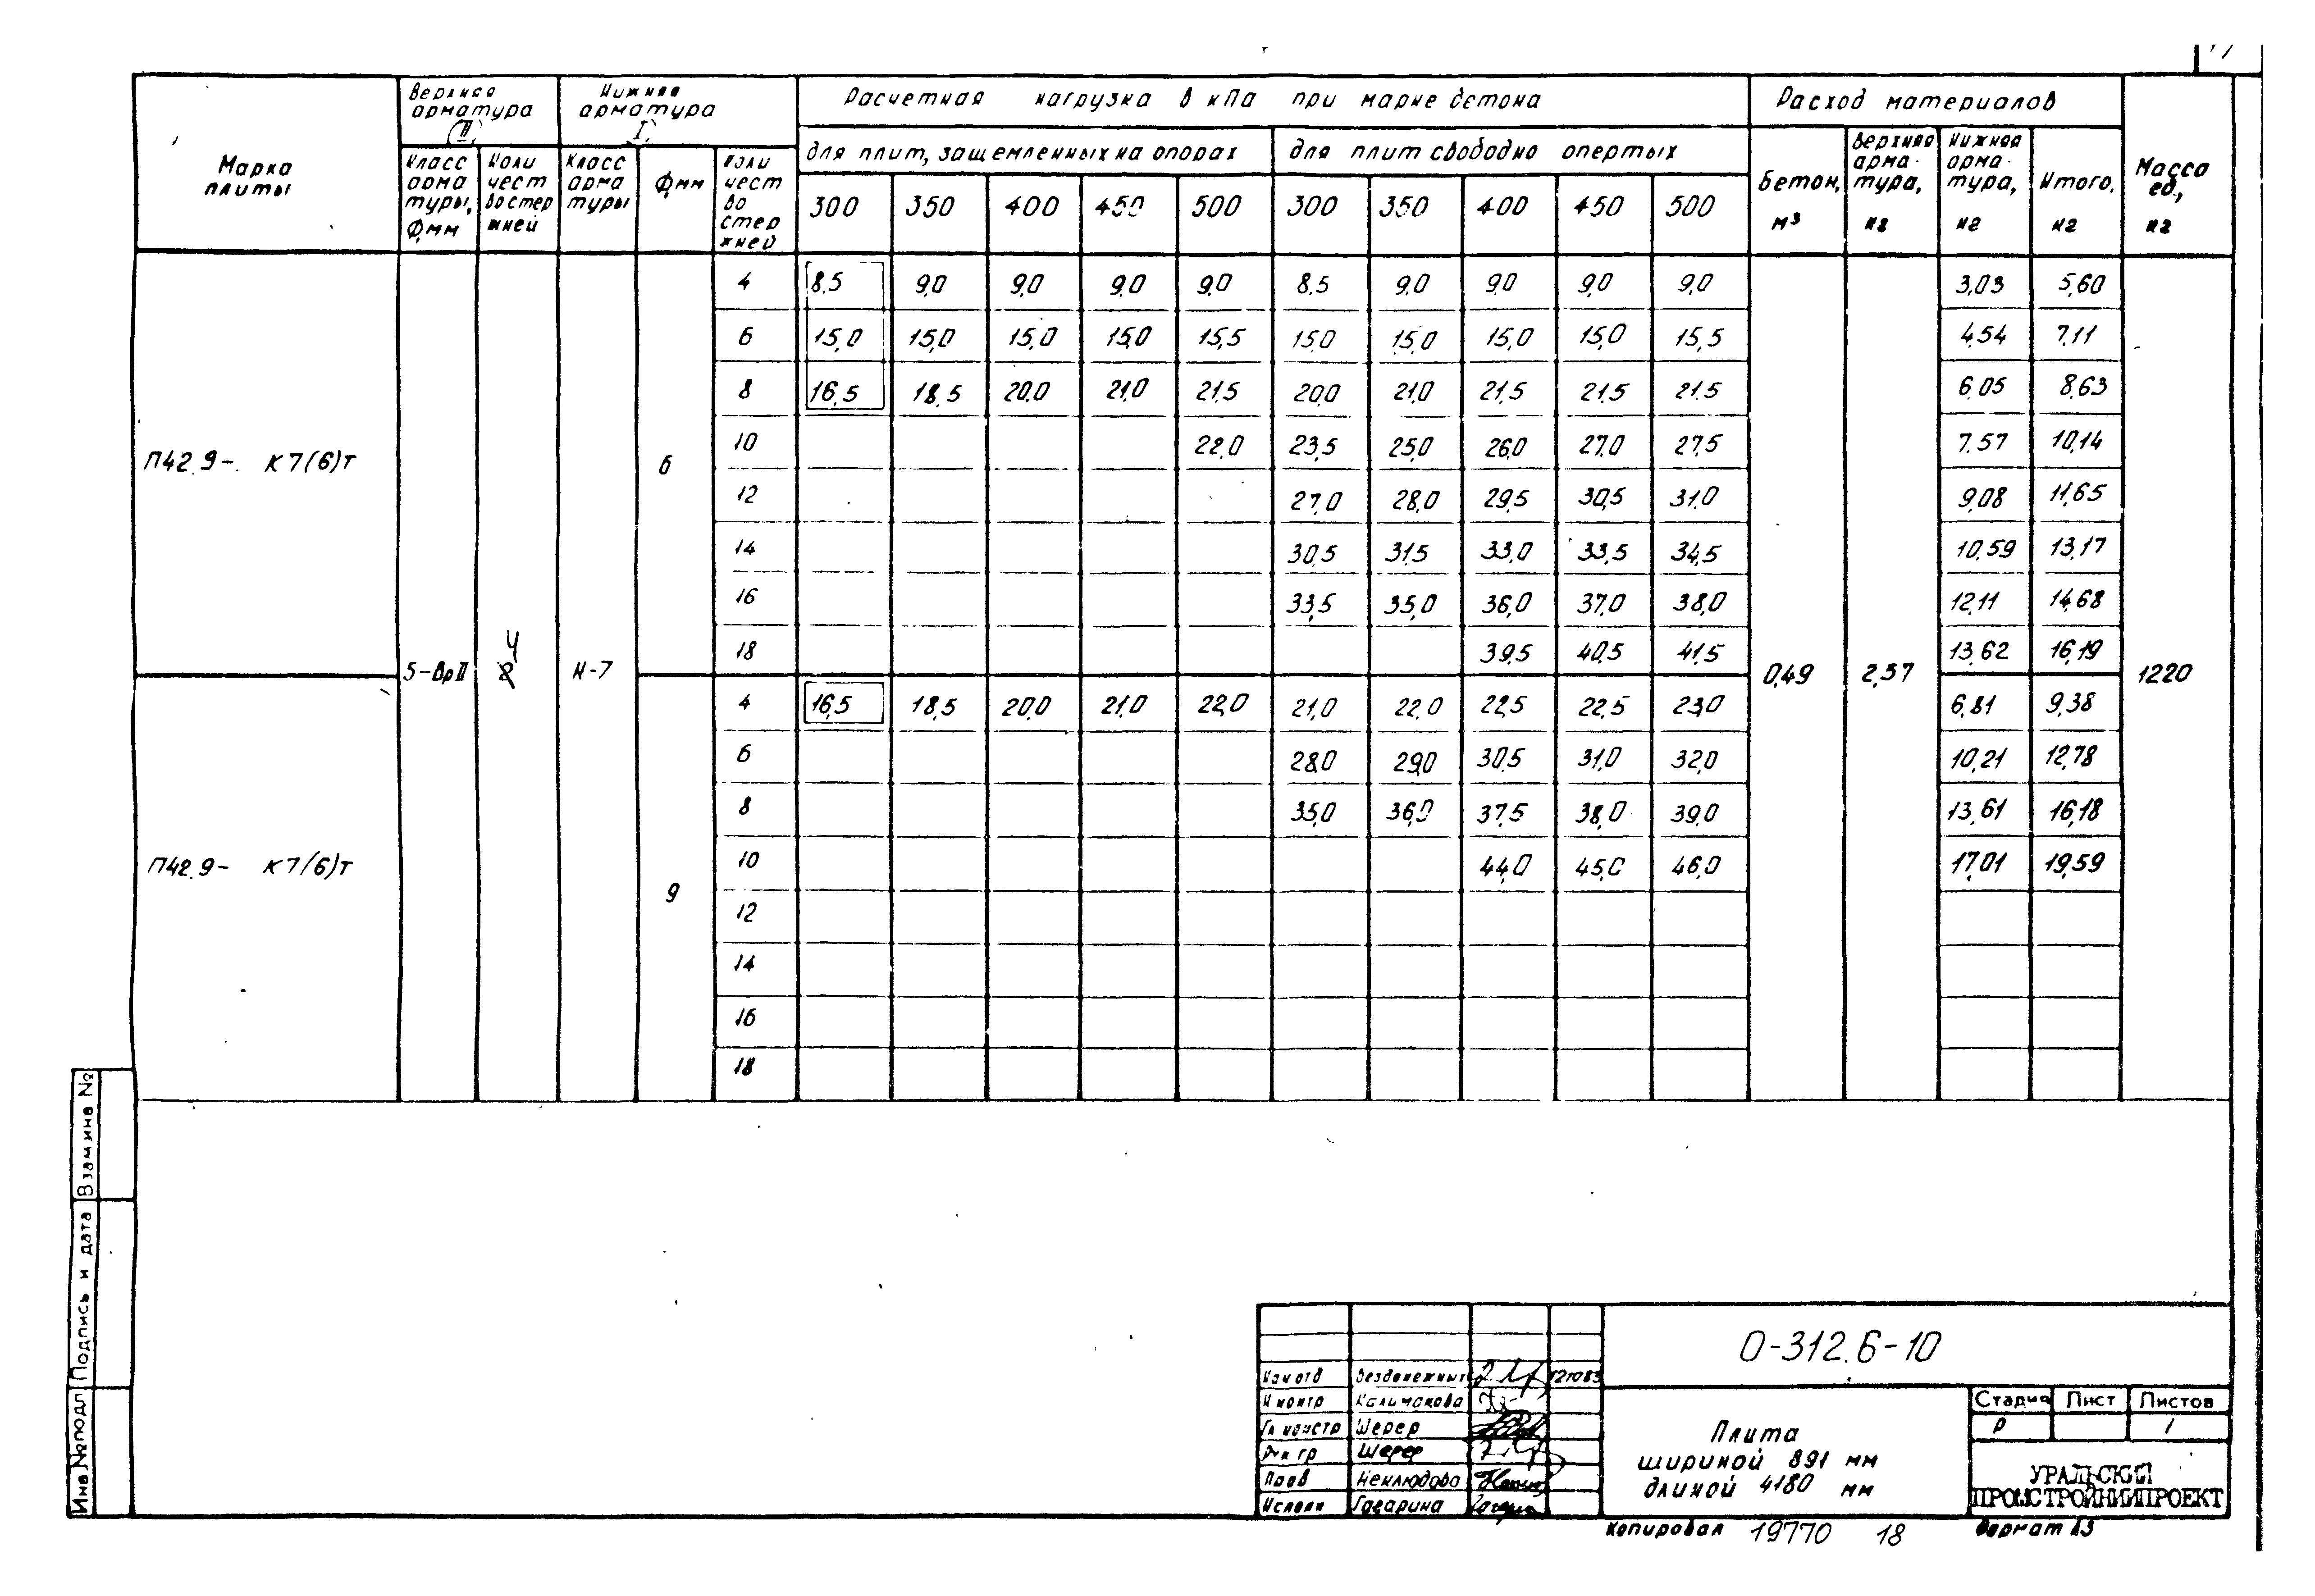 Марка плиты
Верхняя арматура (II)
Нижняя арматура I
Расчетная нагрузка в кПа при марке бетона
Расход материалов
Масса ед., кг
Класс арматуры, Ф,мм
Количество стержней
Класс арматуры
Ф,мм
Количество стержней
для плит, защемленных на опорах
для плит свободно опертых
Бетон, м³
Верхняя арматура, кг
Нижняя арматура, кг
Итого, кг
300 350 400 450 500 300 350 400 450 500
4 8,5 9,0 9,0 9,0 9,0 8,5 9,0 9,0 9,0 9,0 3,03 5,60
6 15,0 15,0 15,0 15,0 15,5 15,0 15,0 15,0 15,0 15,5 4,54 7,11
8 16,5 18,5 20,0 21,0 21,5 20,0 21,0 21,5 21,5 21,5 6,05 8,63
П42.9- К7(6)т 6
10 22,0 23,5 25,0 26,0 27,0 27,5 7,57 10,14
12 27,0 28,0 29,5 30,5 31,0 9,08 11,65
14 30,5 31,5 33,0 33,5 34,5 10,59 13,17
16 33,5 35,0 36,0 37,0 38,0 12,11 14,68
18 39,5 40,5 41,5 13,62 16,19
5-ВрII 4 К-7 0,49 2,57 1220
4 16,5 18,5 20,0 21,0 22,0 21,0 22,0 22,5 22,5 23,0 6,81 9,38
6 28,0 29,0 30,5 31,0 32,0 10,21 12,78
8 35,0 36,0 37,5 38,0 39,0 13,61 16,18
П42.9- К7(6)т 9
10 44,0 45,0 46,0 17,01 19,59
12
14
16
18
Взам инв №
Подпись и дата
Инв № подл
О-312.6-10
Нач отд Безденежных
Н контр Калимакова
Гл констр Шерер
Рук гр Шерер
Пров Неклюдова
Исполн Гагарина
Плита
шириной 891 мм
длиной 4180 мм
Стадия Лист Листов
Р 1
УРАЛЬСКИЙ
ПРОМСТРОЙНИИПРОЕКТ
Копировал 19770 18 Формат А3